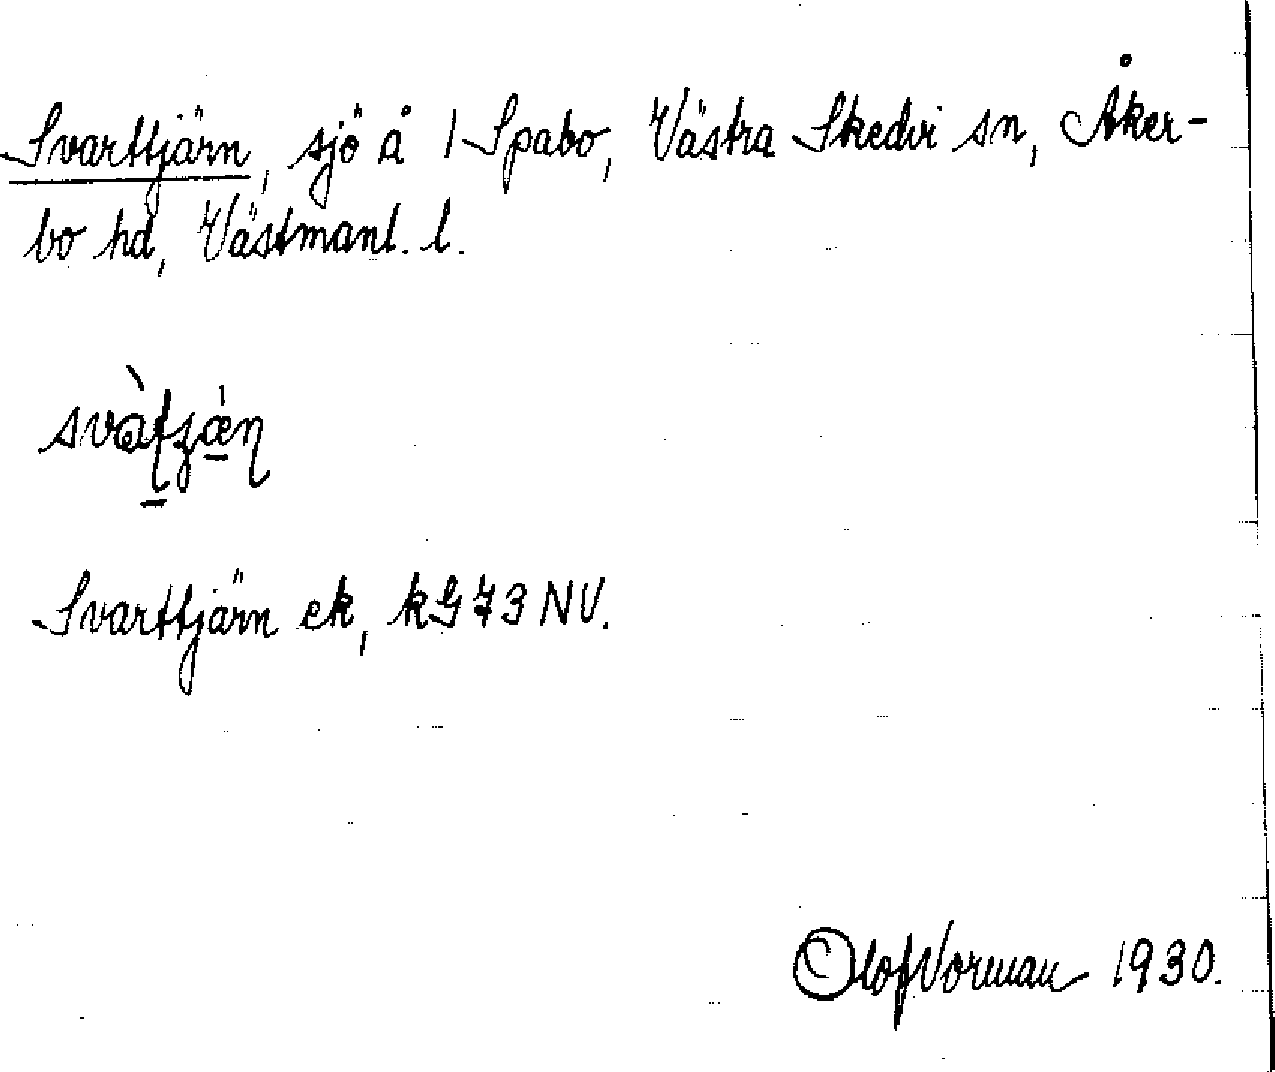 Svarttjärn, sjö å 1 Spabo, Västra Skedvi sn, Åker-
bo hd, Västmanl. l.
Svarttjärn ek, kG 73 NV.
Olof Vorman 1930.